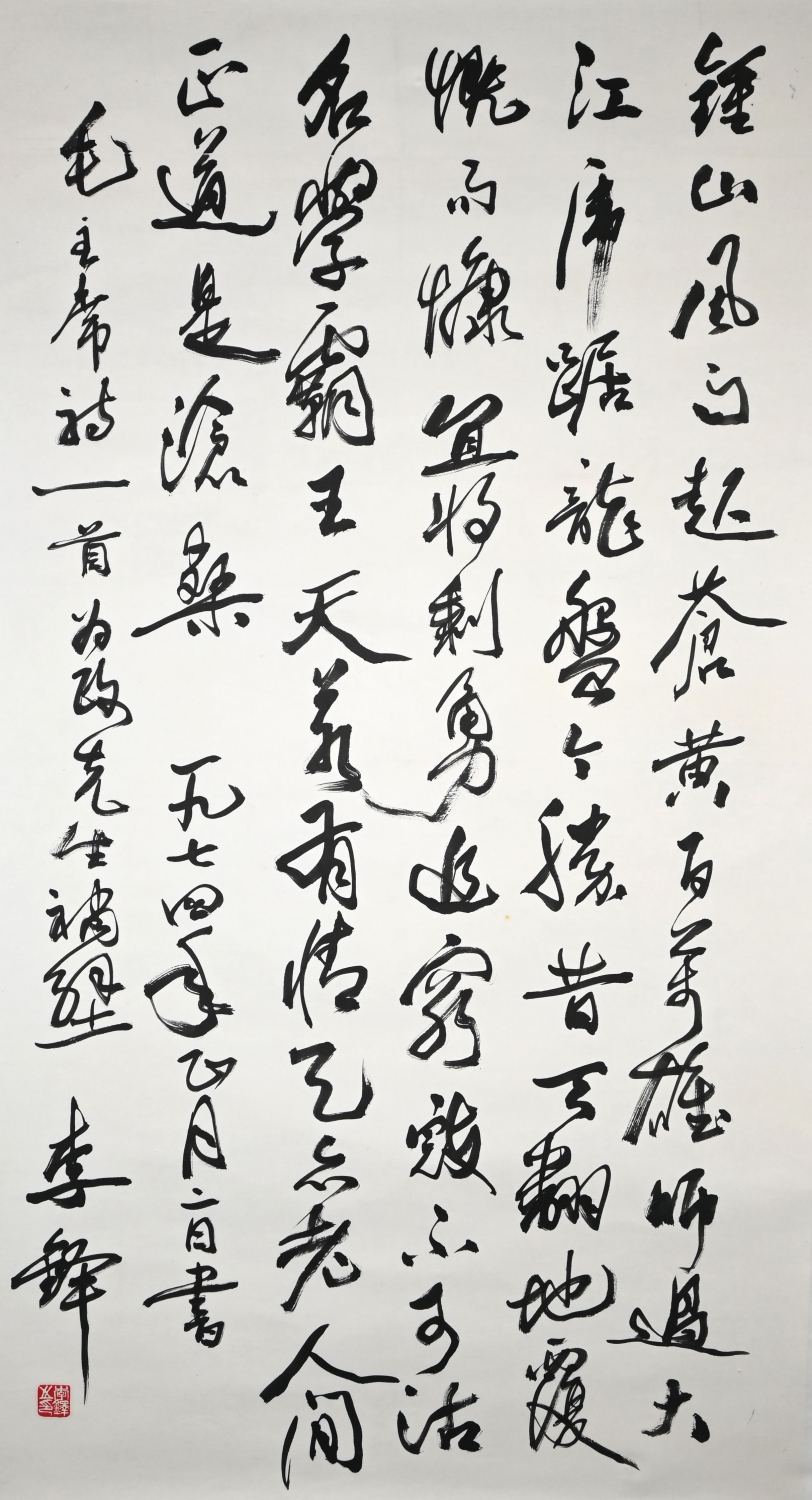 鍾山風雨起蒼黄百萬雄師過大
江虎踞龍盤今勝昔天翻地覆
慨而慷宜將剩勇追窮寇不可沽
名學霸王天若有情天亦老人間
正道是滄桑 一九七四年正月二日書
毛主席詩一首为政先生補壁 李鐸